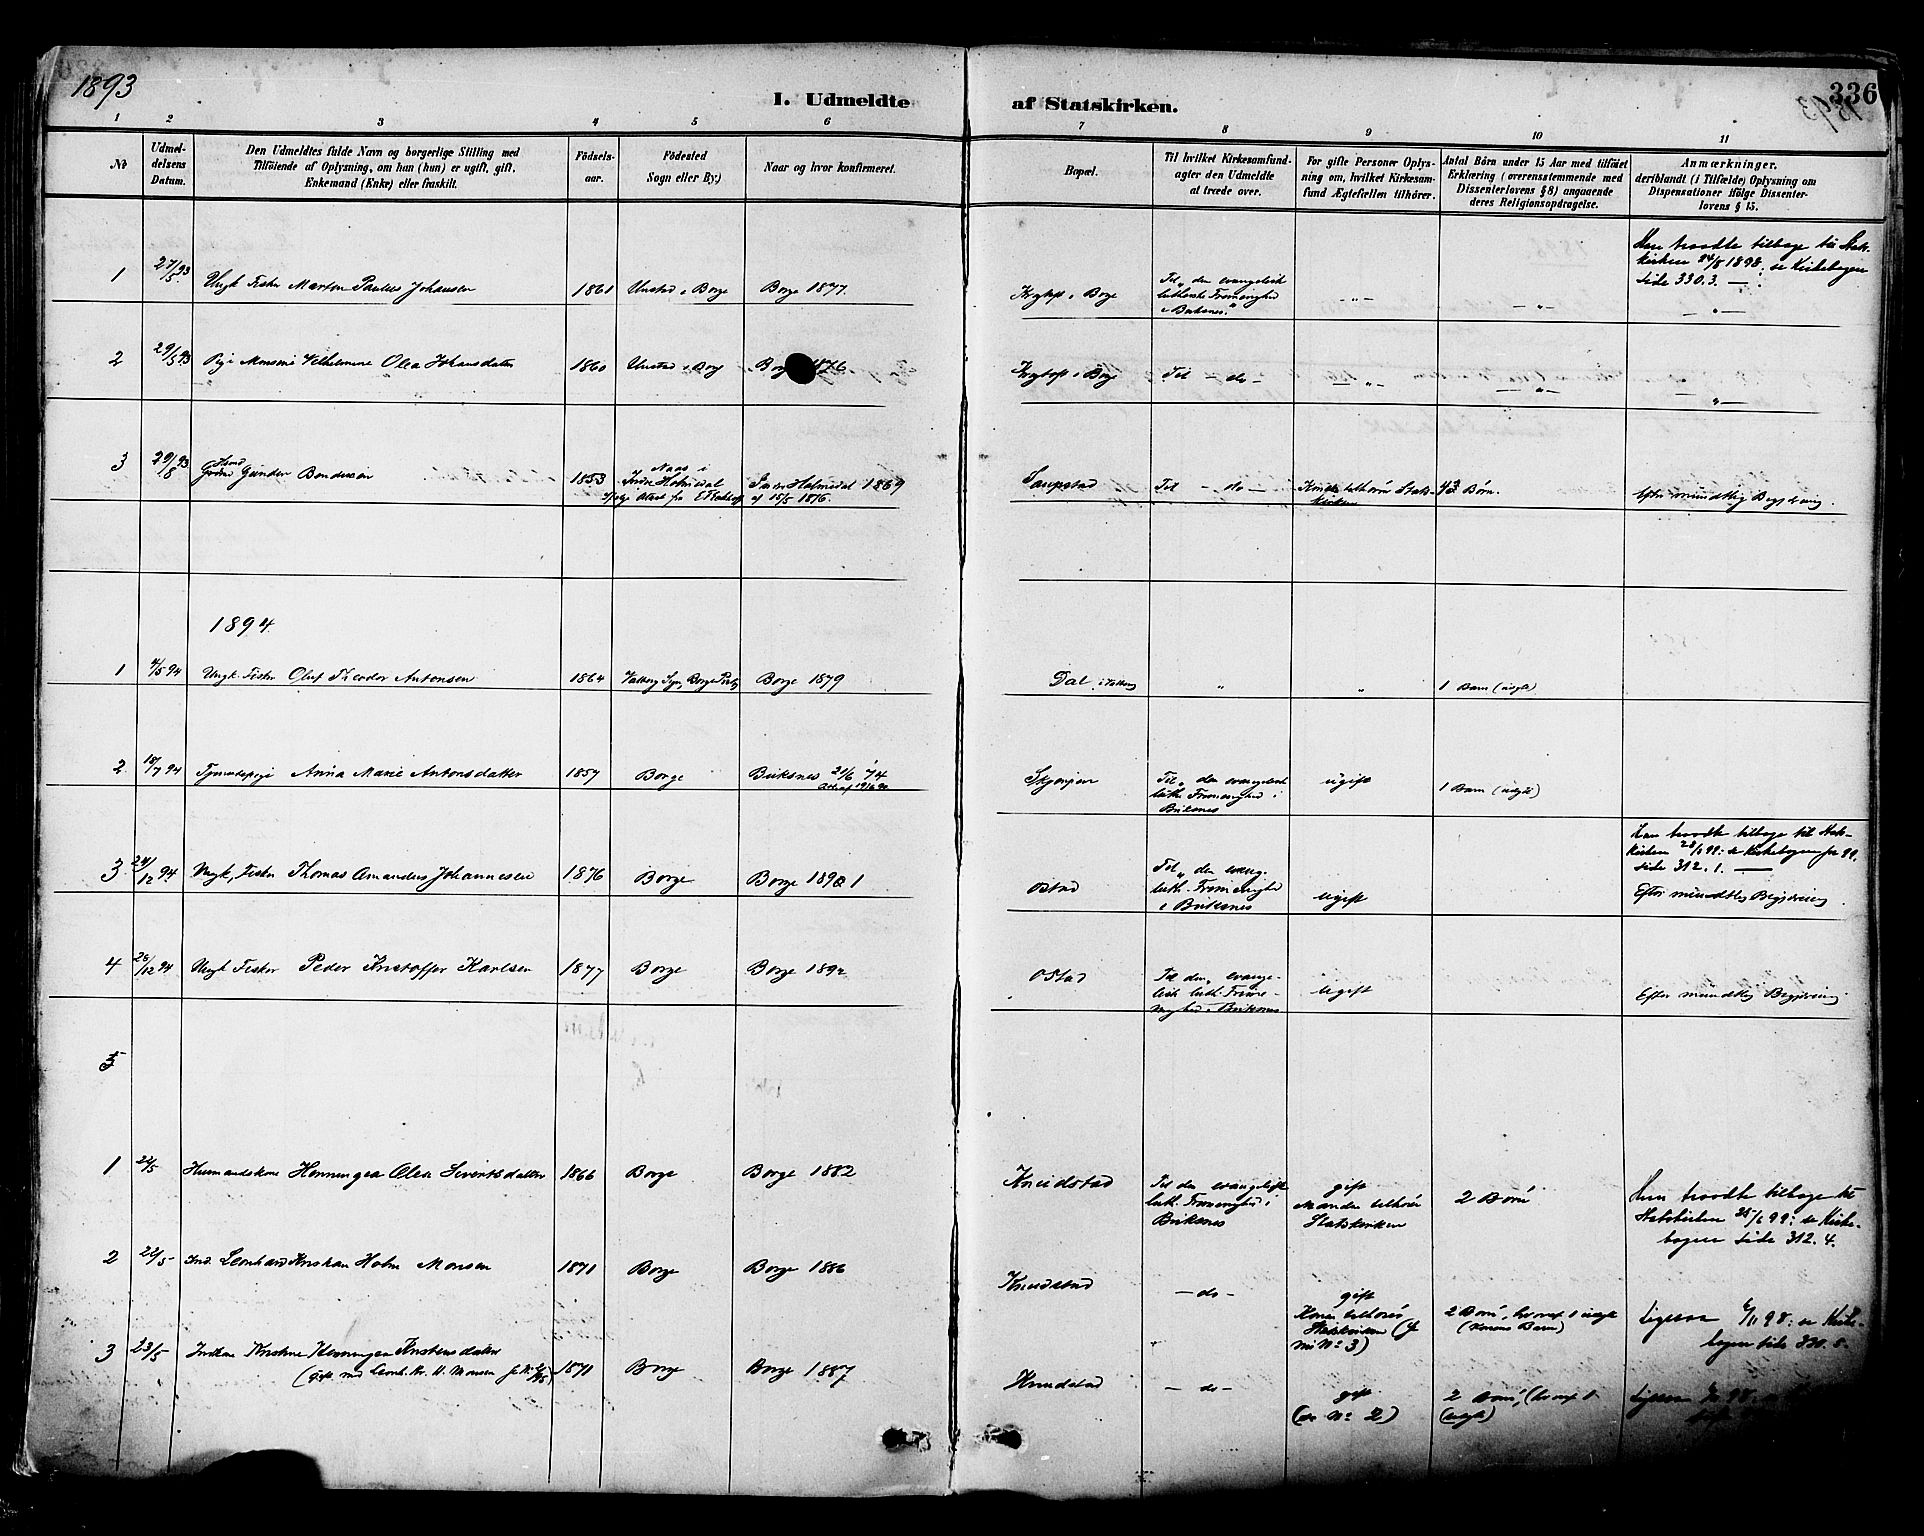 1893
I. Udmeldte af Statskirken.
336
1 2 3 4 5 6 7 8 9 10 11
№
Udmel-
delsens
Datum.
Den Udmeldtes fulde Navn og borgerlige Stilling med
Tilføiende af Oplysning, om han (hun) er ugift, gift,
Enkemand (Enke) eller fraskilt.
Fødsels-
aar.
Fødested
Sogn eller By.)
Naar og hvor konfirmeret.
Bopæl.
Til hvilket Kirkesamfund-
agter den Udmeldte
at træde over.
For gifte Personer Oplys-
ning om, hvilket Kirkesam-
fund Ægtefællen tilhører.
Antal Børn under 15 Aar med tilføiet
Erklæring (overensstemmende med
Dissenterlovens § 8) angaaende
deres Religionsopdragelse.
Anmærkninger,
deriblandt (i Tilfælde) Oplysning om
Dispensationer ifølge Dissenter-
lovens § 15.
1 27/5 93 Ungk Fisker Martin Paulus Johansen 1861 Unstad i Borge Borge 1877. i Borge
Til "den evangelisk
lutherske Frimenighed
i Buksnes."
Han traadte tilbage til Stats-
kirken 24/8 1898: se Kirkebogen
Side 330. 3.
2 29/5 93 Pige Vilhelmine Olea Johansdatter 1860 Unstad i Borg 1876 i Borg Til - do -
3 29/8 93 Gunder Bendiksen 1853
Naas i
Indre Holmedal
Indre Holmedal 1869
15/5 1876.
Saupstad Til - do -
tilhører Stats-
kirken
3 Børn.
Efter mundtlig Begjæring.
1894
1 4/5 94 Ungk. Fisker Oluf Theodor Antonsen 1864 Valberg Sogn, Borge Borge 1879 Dal i Valberg " " 1 Barn (uægte)
2 18/7 94 Tjenestepige Anna Marie Antonsdatter 1857 Borge Buksnes 21/6 '74
Til "den evangelisk
luth. Frimenighed i
Buksnes
ugift 1 Barn (uægte)
3 24/12 94 Ungk, Fisker Thomas Amandus Johannesen 1876 Borge Borge 1891 Ostad
Til "den evang.
luth. Frimenighed
i Buksnes
ugift
Han traadte tilbage til Stats-
kirken 28/1 99: se Kirkebogen for 99,
Side 312. 1.
Efter mundtlig Begjæring
4 26/12 94 Ungk Fisker Peder Kristoffer Karlsen 1877 Borge Borge 1892 Ostad
Til den "evange-
lisk luth. Frime-
nighed i Buksnes
Ugift
Efter mundtlig Begjæring
5
1 22/5 Husmandskone Henningea Olea Sivertsdatter 1866 Borge Borge 1882 Knudstad
Til den evangelisk
luth. Frimenighed i
Buksnes
gift
Manden tilhører
Statskirken
2 Børn
Hun traadte tilbage til
Statskirken 25/1 99: se Kirke-
bogen side 312. 4.
2 22/5 Ind. Leonhard Kristian Holm Monsen 1871 Borge Borge 1886 Knudstad - do -
gift
Konen tilhører
Statskirken (
№ 3)
2 Børn, hvoraf 1 uægte
(Konens Barn)
Ligesaa 98: se Kirke-
bogen side 330. 8.
3 23/5 Kristine Henningea Kristensdatter
(gift med Leonh. Kr. H. Monsen
1871 Borge Borge 1887 Knudstad - do -
gift
(se № 2)
2 Børn, (hvoraf 1
uægte)
Ligesaa 98